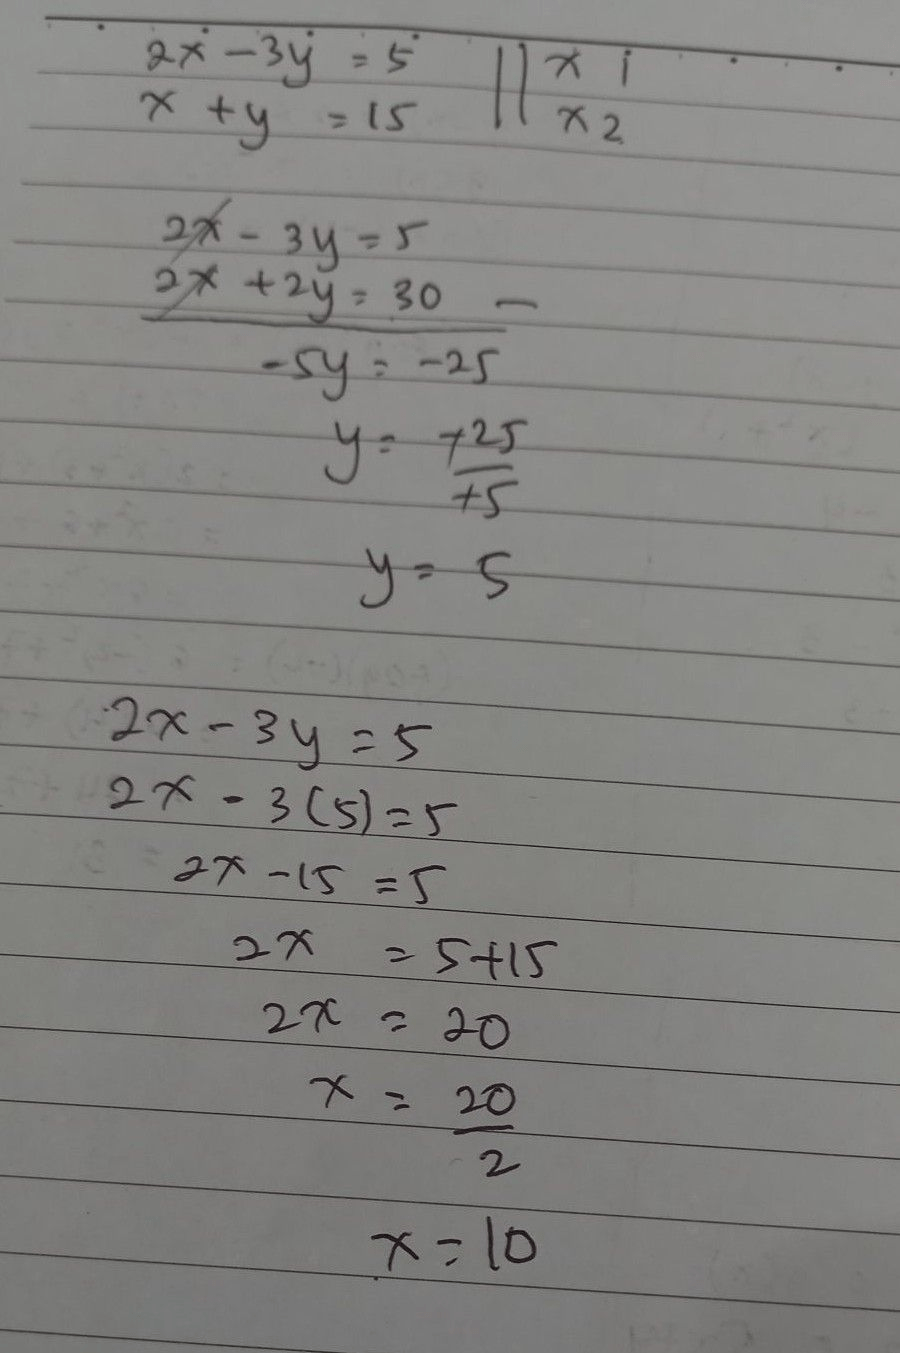 2x - 3y = 5 || x 1
x + y = 15 || x 2
2x - 3y = 5
2x + 2y = 30 -
-5y = -25
y = +25
+5
y = 5
2x - 3y = 5
2x - 3(5) = 5
2x - 15 = 5
2x = 5+15
2x = 20
x = 20
2
x = 10